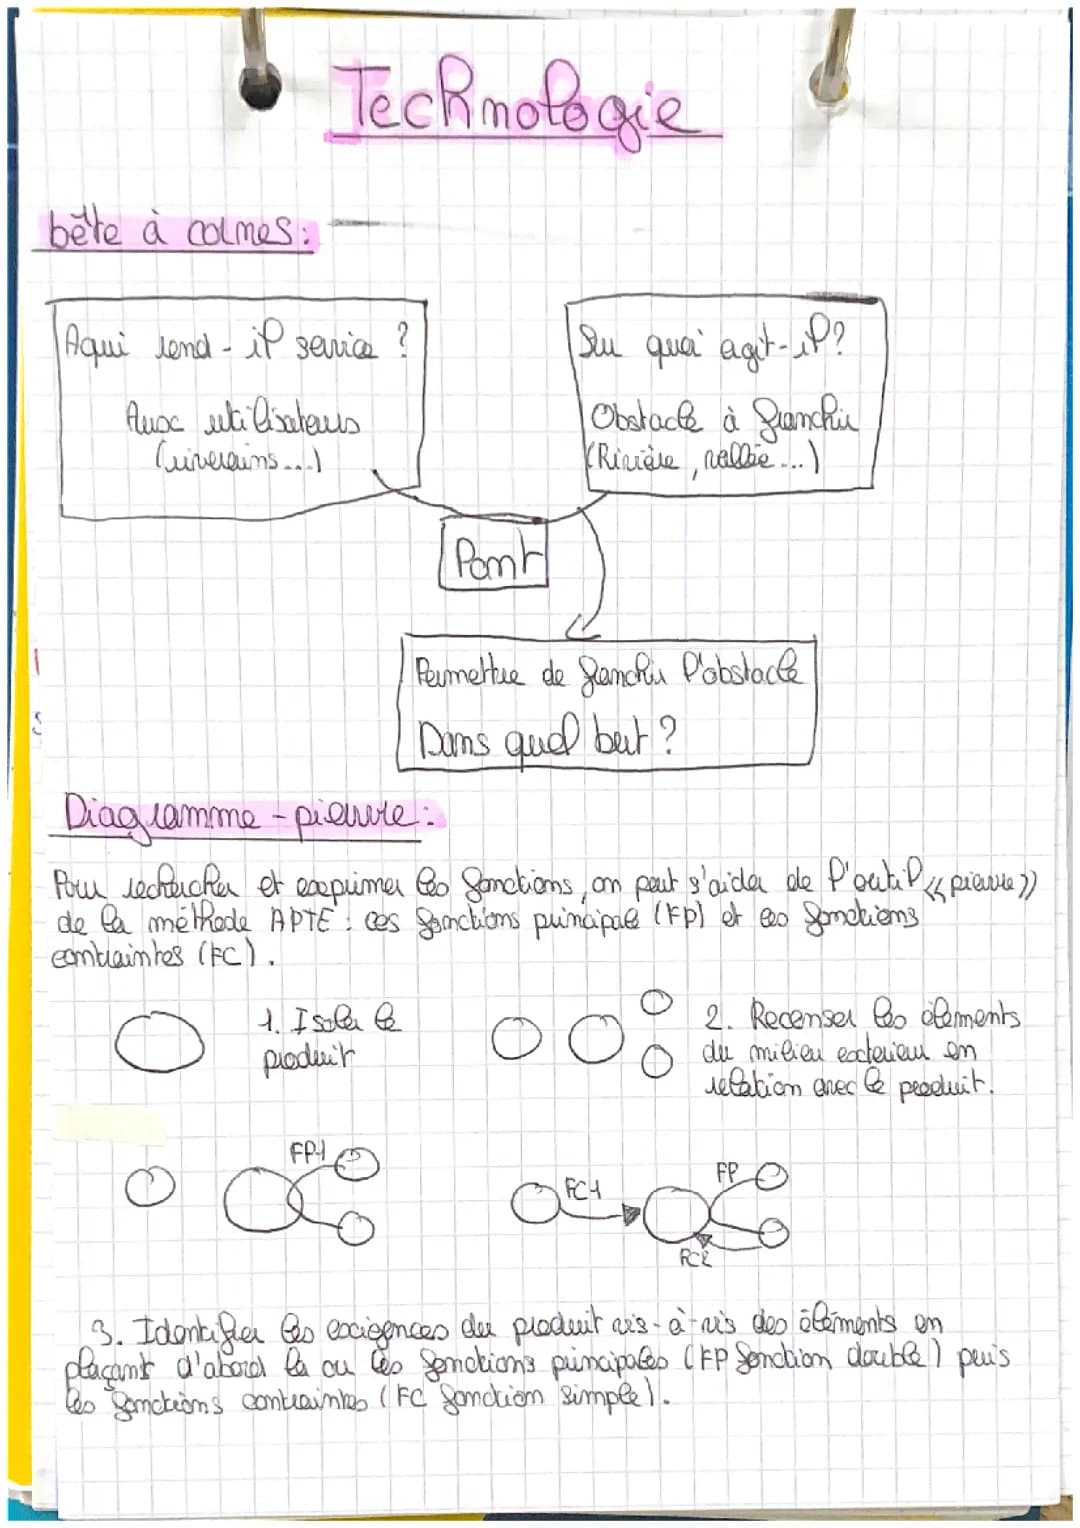 Technologie
bête à cornes :
Aqui rend-il service ?
Aux utilisateurs
(riverains...)
Sur quoi agit-il ?
Obstacle à franchir
(Rivière, vallée...)
Pont
Permettre de franchir l'obstacle
Dans quel but ?
Diagramme - pieuvre :
Pour rechercher et exprimer les fonctions, on peut s'aider de l'outil << pieuvre >>
de la méthode APTE : ces fonctions principale (FP) et les fonctions
contraintes (FC).
1. Isoler le
produit
2. Recenser les éléments
du milieu exterieur en
relation avec le produit.
FP1
FC1
FP
FC2
3. Identifier les exigences du produit vis-à-vis des éléments en
plaçant d'abord la ou les fonctions principales (FP fonction double) puis
les fonctions contraintes (FC fonction simple).